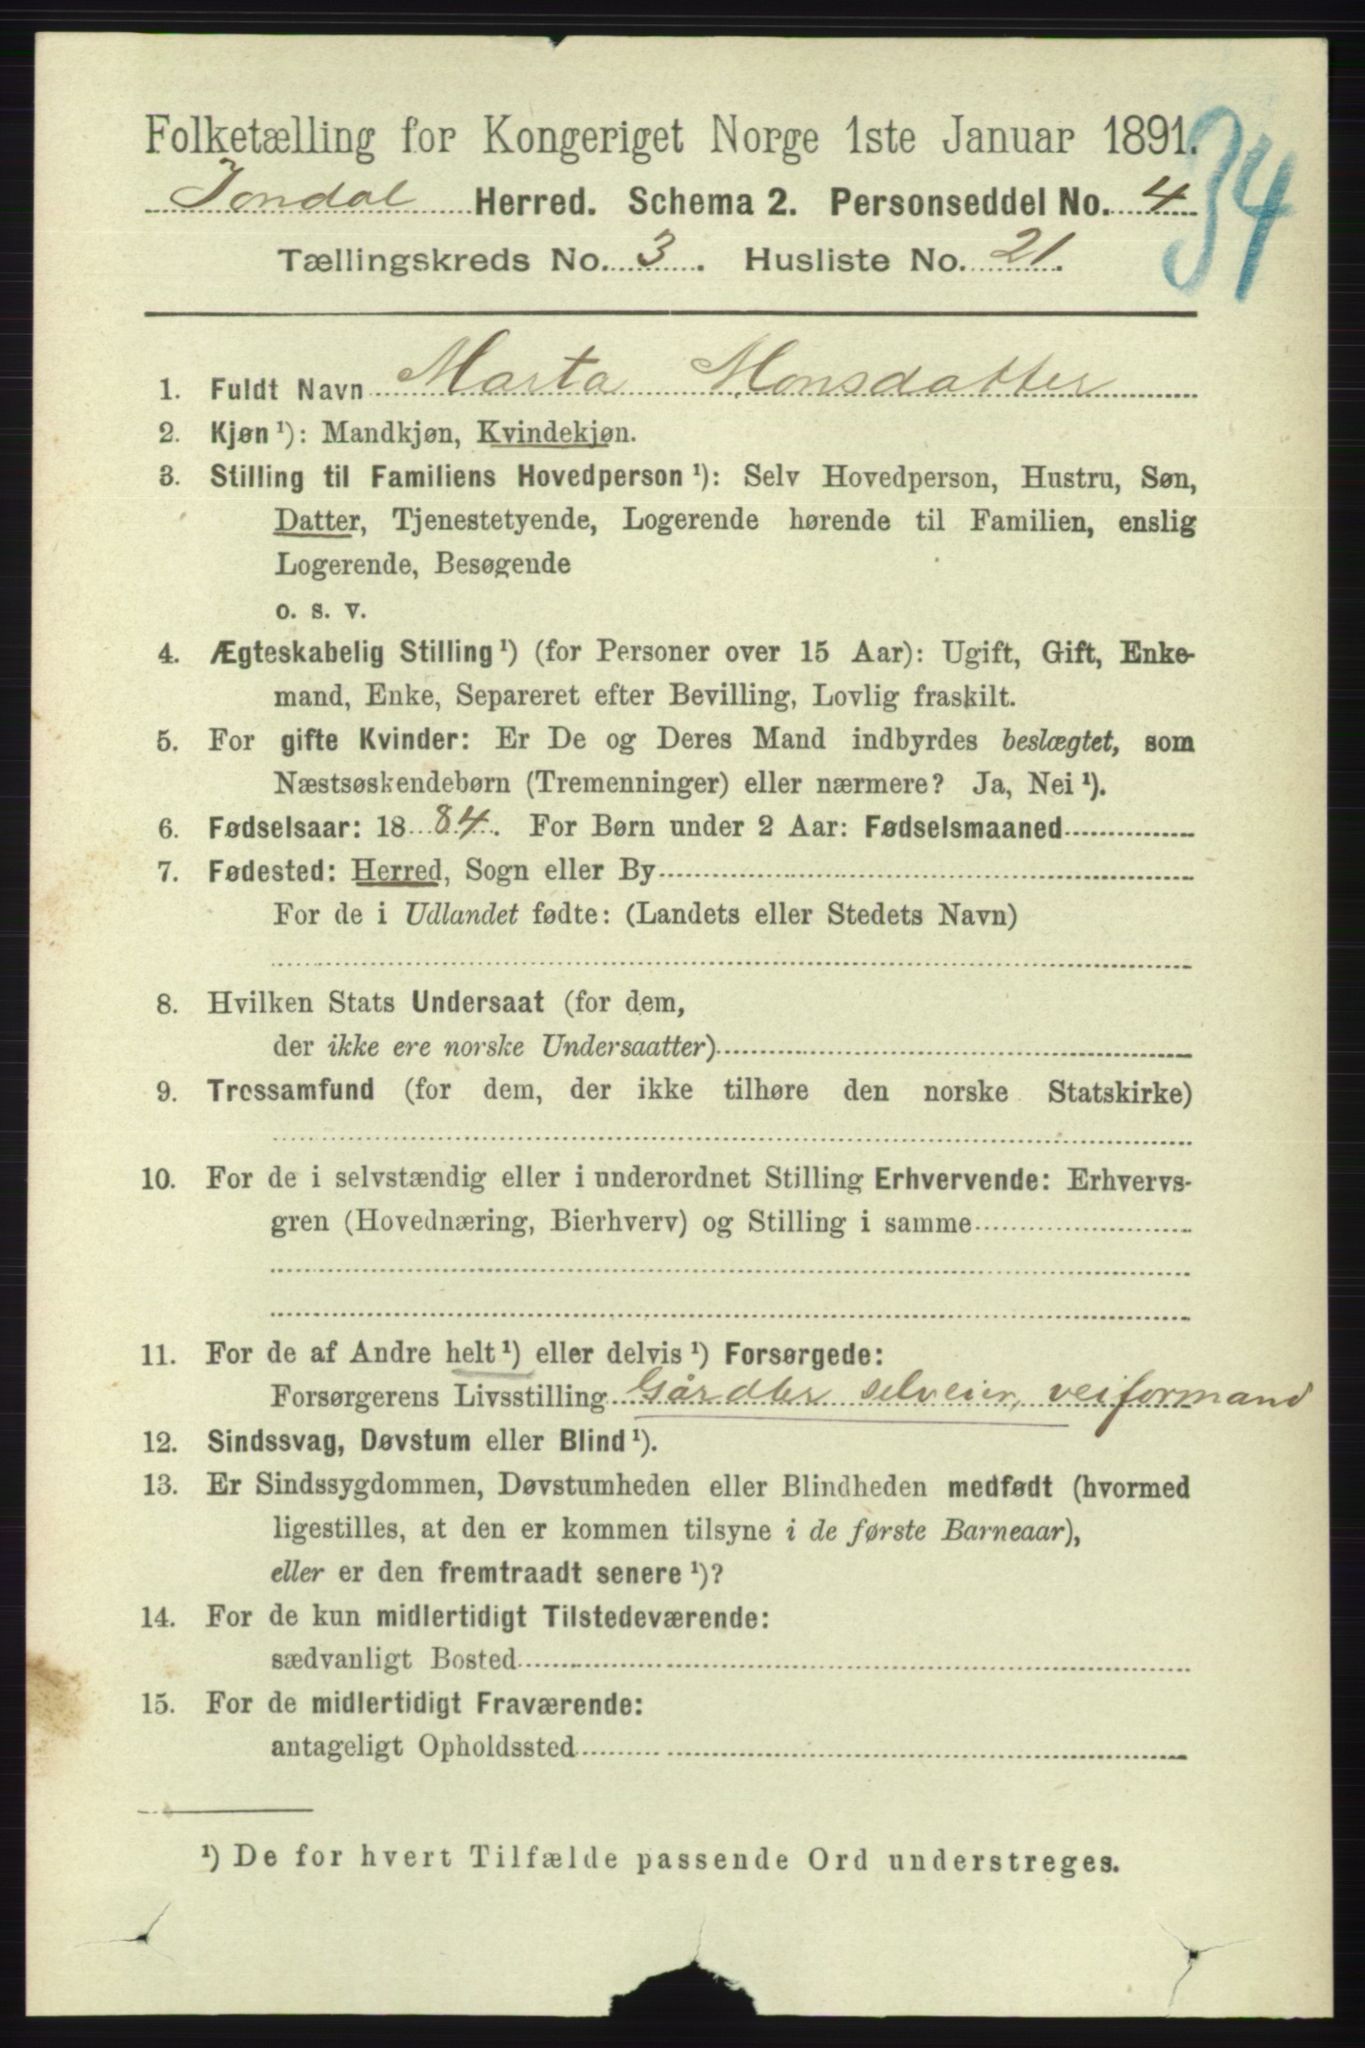 Folketælling for Kongeriget Norge 1ste Januar 1891.
34
Jondal Herred. Schema 2. Personseddel No. 4
Tællingskreds No. 3. Husliste No. 21.
1. Fuldt Navn Marta Monsdatter
2. Kjøn ¹): Mandkjøn, Kvindekjøn.
3. Stilling til Familiens Hovedperson ¹): Selv Hovedperson, Hustru, Søn,
Datter, Tjenestetyende, Logerende hørende til Familien, enslig
Logerende, Besøgende
o. s. v.
4. Ægteskabelig Stilling ¹) (for Personer over 15 Aar): Ugift, Gift, Enke-
mand, Enke, Separeret efter Bevilling, Lovlig fraskilt.
5. For gifte Kvinder: Er De og Deres Mand indbyrdes beslægtet, som
Næstsøskendebørn (Tremenninger) eller nærmere? Ja, Nei ¹).
6. Fødselsaar: 1884. For Børn under 2 Aar: Fødselsmaaned
7. Fødested: Herred, Sogn eller By
For de i Udlandet fødte: (Landets eller Stedets Navn)
8. Hvilken Stats Undersaat (for dem,
der ikke ere norske Undersaatter)
9. Trossamfund (for dem, der ikke tilhøre den norske Statskirke)
10. For de i selvstændig eller i underordnet Stilling Erhvervende: Erhvervs-
gren (Hovednæring, Bierhverv) og Stilling i samme
11. For de af Andre helt ¹) eller delvis ¹) Forsørgede:
Forsørgerens Livsstilling Gårdbr selveier, veiformand
12. Sindssvag, Døvstum eller Blind ¹).
13. Er Sindssygdommen, Døvstumheden eller Blindheden medfødt (hvormed
ligestilles, at den er kommen tilsyne i de første Barneaar),
eller er den fremtraadt senere ¹)?
14. For de kun midlertidigt Tilstedeværende:
sædvanligt Bosted
15. For de midlertidigt Fraværende:
antageligt Opholdssted
¹) De for hvert Tilfælde passende Ord understreges.